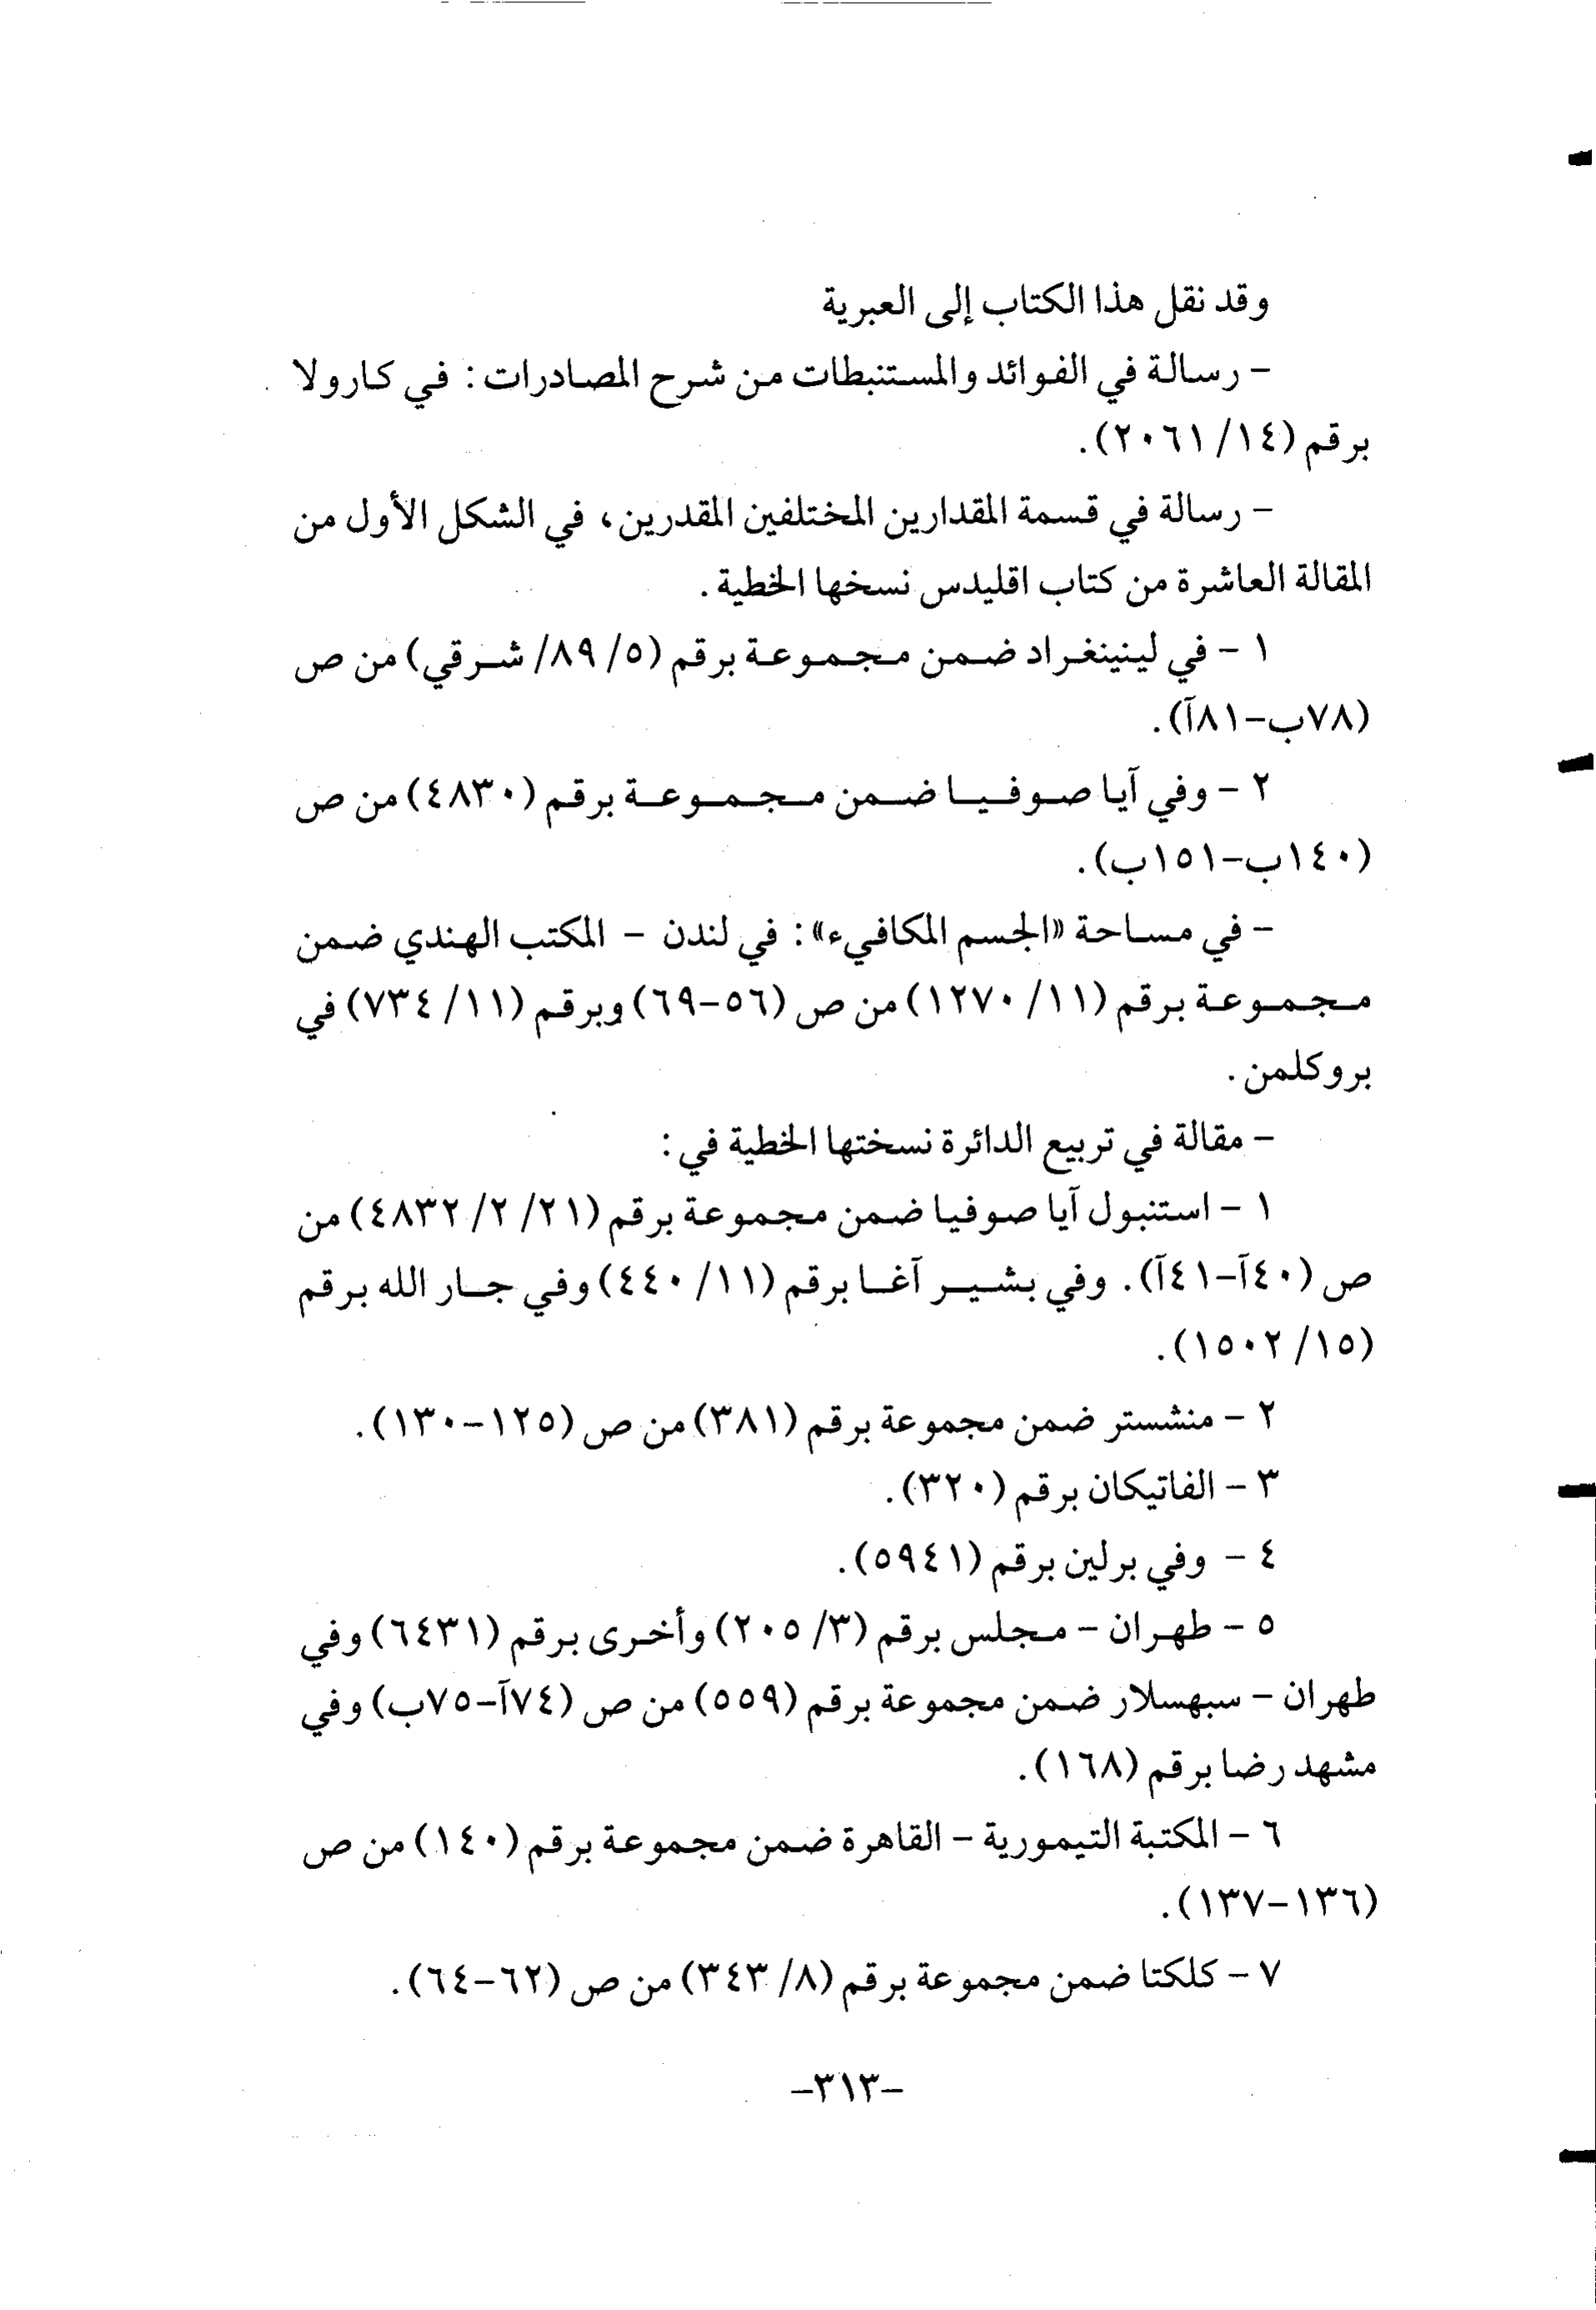 وقد نقل هذا الكتاب إلى العبرية
- رسالة في الفوائد والمستنبطات من شرح المصادرات : في كارولا
برقم (١٤/ ٢٠٦١).
- رسالة في قسمة المقدارين المختلفين المقدرين، في الشكل الأول من
المقالة العاشرة من كتاب اقليدس نسخها الخطية.
١ - في لينينغراد ضمن مجموعة برقم (٥/ ٨٩/ شرقي) من ص
(٧٨ب-٨١آ).
٢ - وفي آيا صوفيا ضمن مجموعة برقم (٤٨٣٠) من ص
(١٤٠ب-١٥١ب).
- في مساحة «الجسم المكافيء»: في لندن - المكتب الهندي ضمن
مجموعة برقم (١١/ ١٢٧٠) من ص (٥٦-٦٩) وبرقم (١١/ ٧٣٤) في
بروكلمن.
- مقالة في تربيع الدائرة نسختها الخطية في :
١ - استنبول آيا صوفيا ضمن مجموعة برقم (٢١/ ٢/ ٤٨٣٢) من
ص (٤٠آ-٤١آ). وفي بشير آغا برقم (١١/ ٤٤٠) وفي جار الله برقم
(١٥/ ١٥٠٢).
٢ - منشستر ضمن مجموعة برقم (٣٨١) من ص (١٢٥-١٣٠).
٣ - الفاتيكان برقم (٣٢٠).
٤ - وفي برلين برقم (٥٩٤١).
٥ - طهران - مجلس برقم (٣/ ٢٠٥) وأخرى برقم (٦٤٣١) وفي
طهران - سبهسلار ضمن مجموعة برقم (٥٥٩) من ص (٧٤آ-٧٥ب) وفي
مشهد رضا برقم (١٦٨).
٦ - المكتبة التيمورية - القاهرة ضمن مجموعة برقم (١٤٠) من ص
(١٣٦-١٣٧).
٧ - كلكتا ضمن مجموعة برقم (٨/ ٣٤٣) من ص (٦٢-٦٤).
-٣١٣-